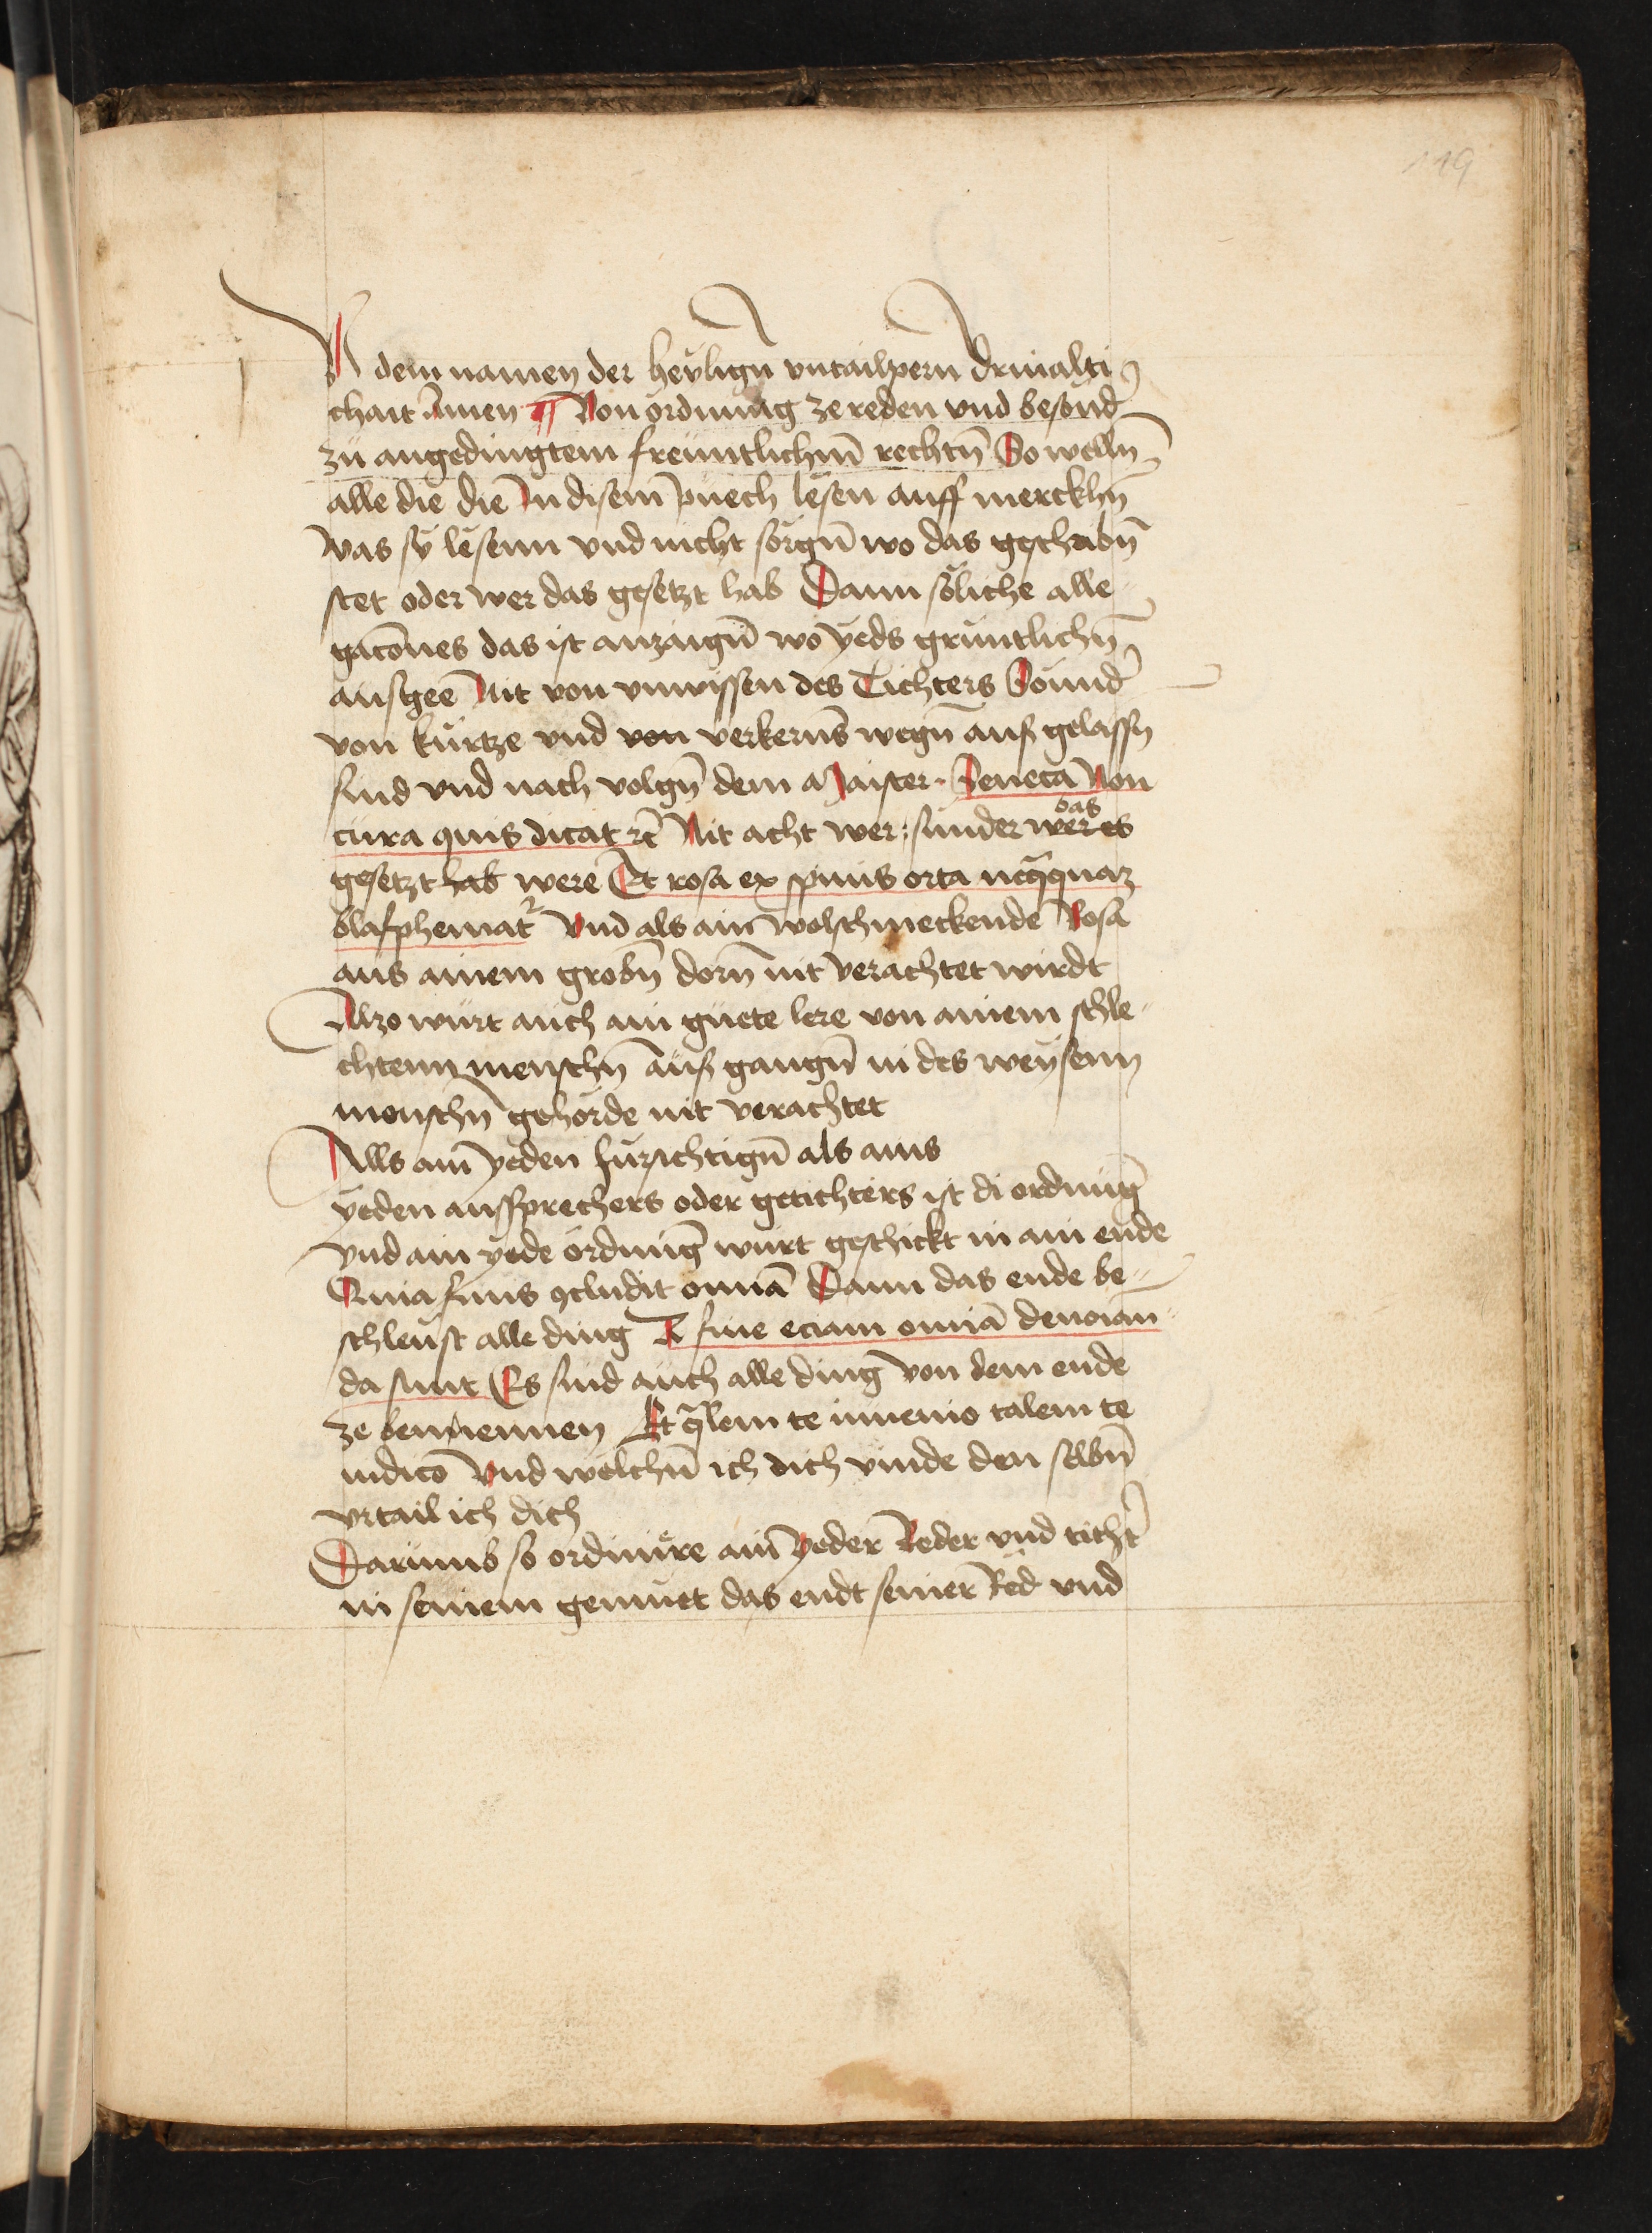 119
In dem namen der heylign̄ vntailpern Driualti
chait Amen Von ordnung ze reden vnd besond
zu angedingtem freuntlichm̄ rechtn̄ So welln̄
alle die die In disem puech lesen auff merckhn̄
was sy lesenn vnd nicht sorgn̄ wo das geschribn̄
stet oder wer das gesetzt hab Dann söliche alle
gacōnes das ist anzaign̄ wo yeds gruntlichn̄
ausgee Nit von vnwissen des Tichters Sounder
von kurtze vnd von verkerns wegn̄ aus gelassn
sind vnd nach volgn̄ dem Maister Seneca Non
cura quis dicat rc̄ Nit acht wer sunder wer das es
gesetzt hab were Et rosa ex spinis orta neq̄quaz
blasphemat~ Vnd als ain wolschmeckende Rosa
aus ainem grobn̄ dorn̄ nit verachtet wirdt
Alzo wurt auch ain guete lere von ainem schle
chtenn menschn̄ aus gangn̄ in des weysenn
menschn̄ gehörde nit verachtet
Alls ain yeden fursichtign̄ als ains
yeden aussprechers oder getichters ist di ordnung
vnd ain yede ordnung wurt geschickt in ain ende
Quia finis ꝯcludit omīa Dann das ende be
schleust alle ding A fine eciam omīa denoīan
da sunt Es sind auch alle ding von dem ende
ze bennennen Et q̄lem te inuenio talem te
iudico Vnd welchn̄ ich dich vinde den selbn̄
vrtail ich dich
Darumb so ordinire ain yeder Reder vnd ticht
in seinem gemuet das endt seiner Red vnd